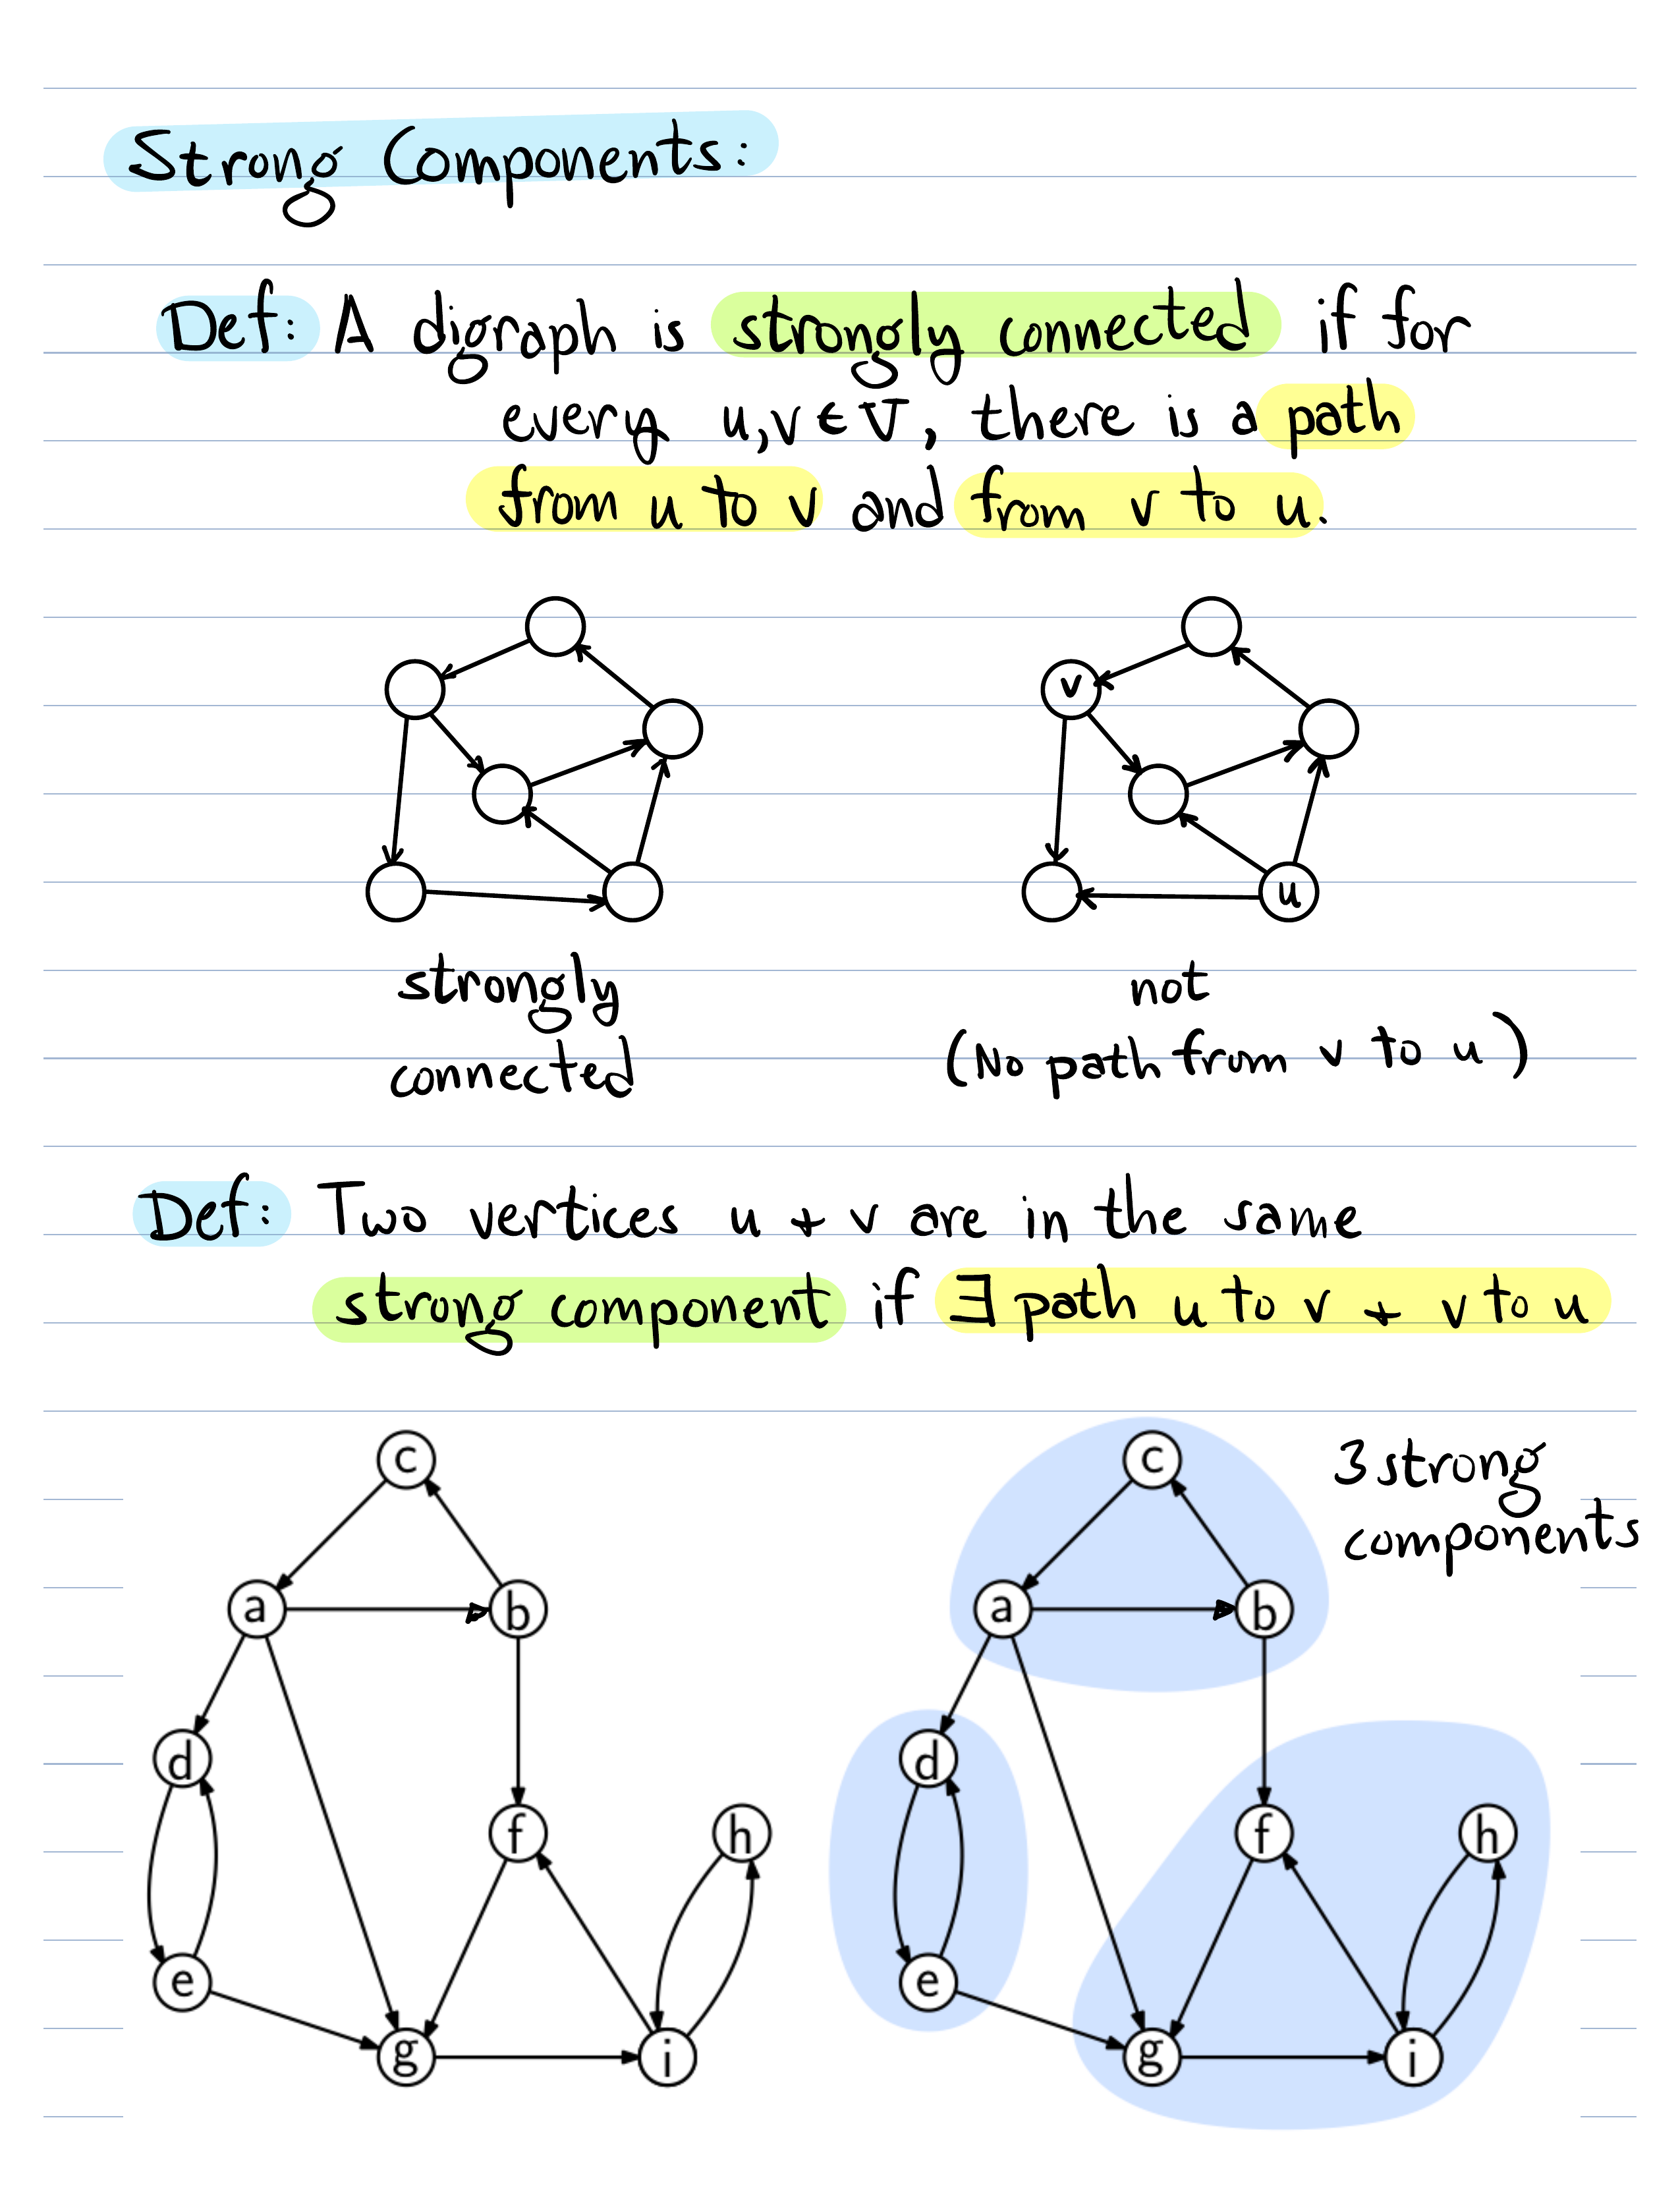 Strong Components:
Def: A digraph is strongly connected if for
every u,v ∈ V, there is a path
from u to v and from v to u.
v
u
strongly
connected
not
(No path from v to u)
Def: Two vertices u + v are in the same
strong component if ∃ path u to v + v to u
3 strong
components
c
a b
d
f h
e
g i
c
a b
d
f h
e
g i